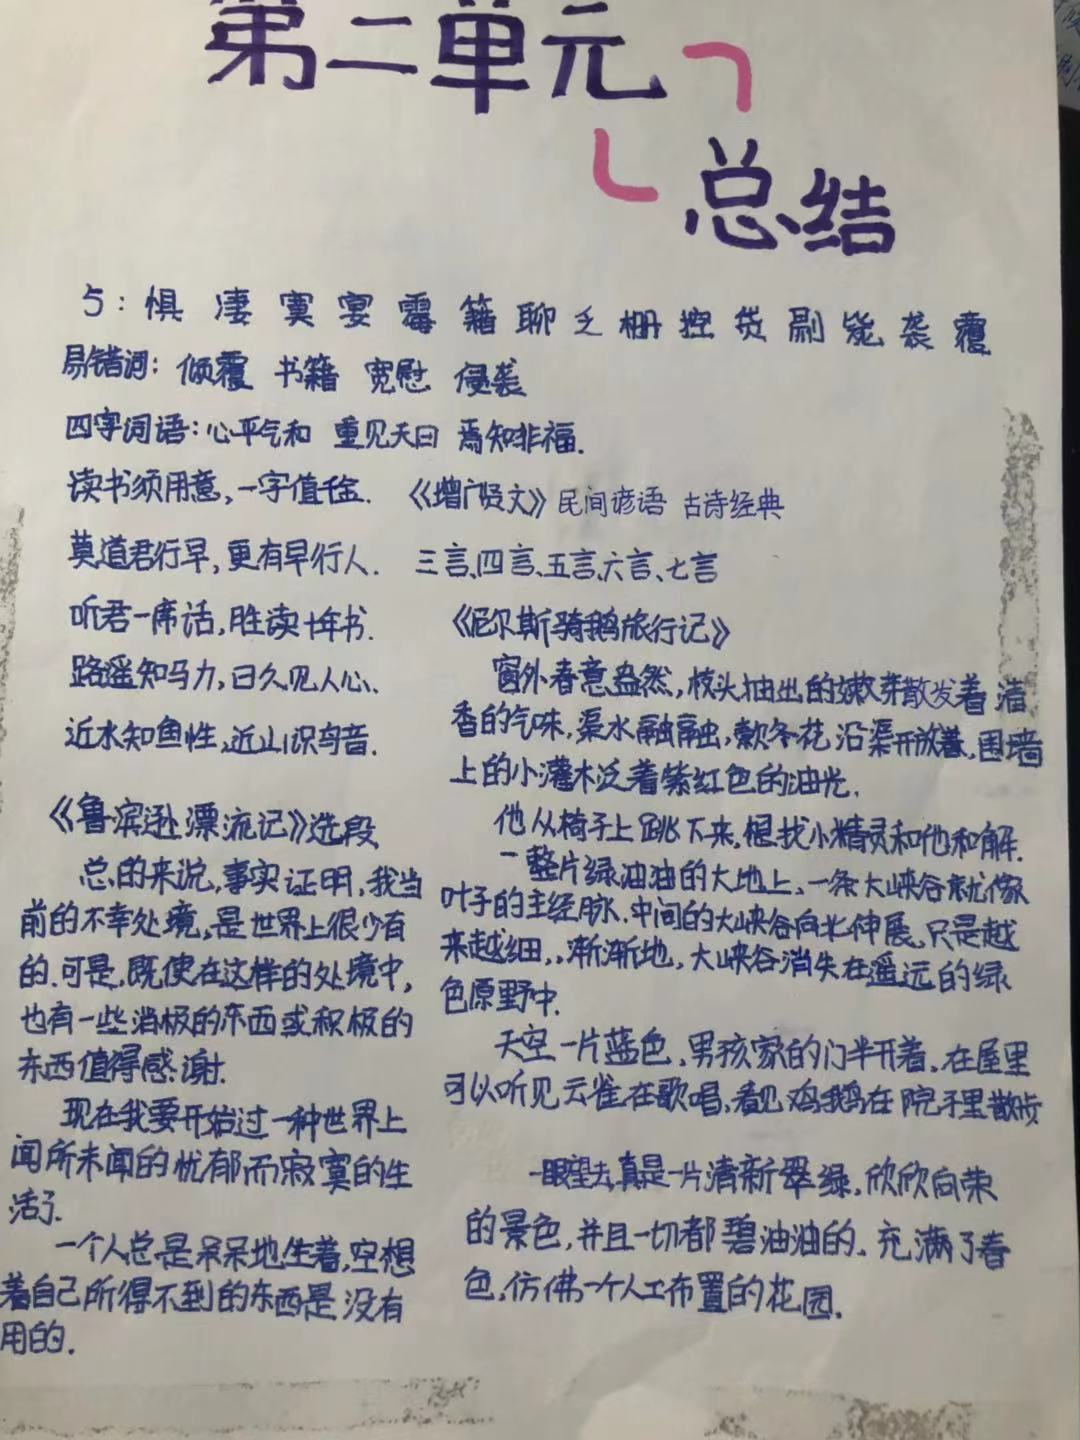 第二单元
总结
5：惧 凄 寞 宴 霉 籍 聊 乏 栅 控 货 剐 能 袭 覆
易错词：倾覆 书籍 宽慰 侵袭
四字词语：心平气和 重见天日 焉知非福.
读书须用意，一字值千金.
莫道君行早，更有早行人.
听君一席话，胜读十年书.
路遥知马力，日久见人心.
近水知鱼性，近山识鸟音.
《鲁滨逊漂流记》选段
总的来说，事实证明，我当
前的不幸处境，是世界上很少有
的.可是，既使在这样的处境中，
也有一些消极的东西或积极的
东西值得感谢.
现在我要开始过一种世界上
闻所未闻的忧郁而寂寞的生
活了.
一个人总是呆呆地坐着，空想
着自己所得不到的东西是没有
用的.
《增广贤文》民间谚语 古诗经典
三言、四言、五言、六言、七言
《尼尔斯骑鹅旅行记》
窗外春意盎然，枝头抽出的嫩芽散发着清
香的气味，渠水融融，款冬花沿渠开放着，围墙
上的小灌木泛着紫红色的油光.
他从椅子上跳下来，想找小精灵和他和解.
一整片绿油油的大地上，一条大峡谷就像
叶子的主经脉.中间的大峡谷向北伸展，只是越
来越细，，渐渐地，大峡谷消失在遥远的绿
色原野中.
天空一片蓝色，男孩家的门半开着，在屋里
可以听见云雀在歌唱，看见鸡鹅在院子里散步
一眼望去，真是一片清新翠绿，欣欣向荣
的景色，并且一切都碧油油的，充满了春
色，仿佛一个人工布置的花园.